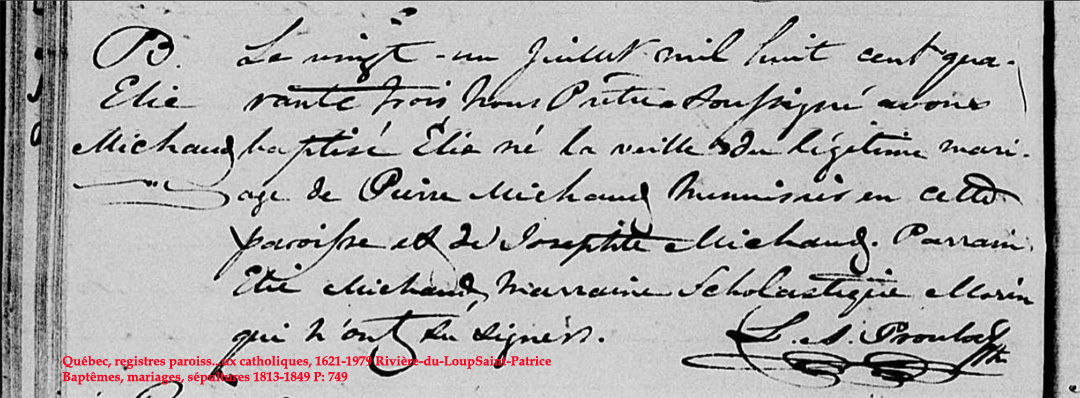 B.
Elie
Michaud
Le vingt-un Juillet mil huit cent qua-
rante trois Nous Prêtre soussigné avons
baptisé Elie né la veille du légitime mari-
age de Pierre Michaud Menuisier en cette
paroisse et de Josephte Michaud. Parrain
Elie Michaud, Marraine Scholastique Morin
qui n'ont su signer.
L. A. Proulx Ptr
Québec, registres paroiss...ux catholiques, 1621-1979 Rivière-du-LoupSaint-Patrice
Baptêmes, mariages, sépultures 1813-1849 P: 749